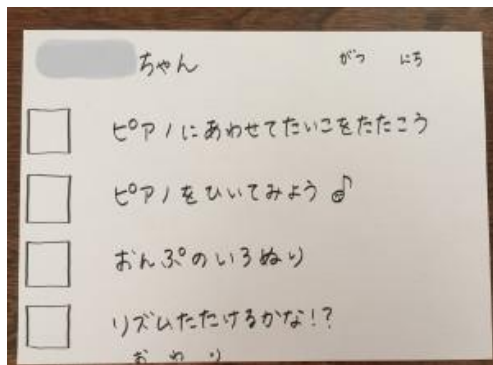 ちゃん がつ にち
ピアノにあわせてたいこをたたこう
ピアノをひいてみよう♪
おんぷのいろぬり
リズムたたけるかな!?
おわり